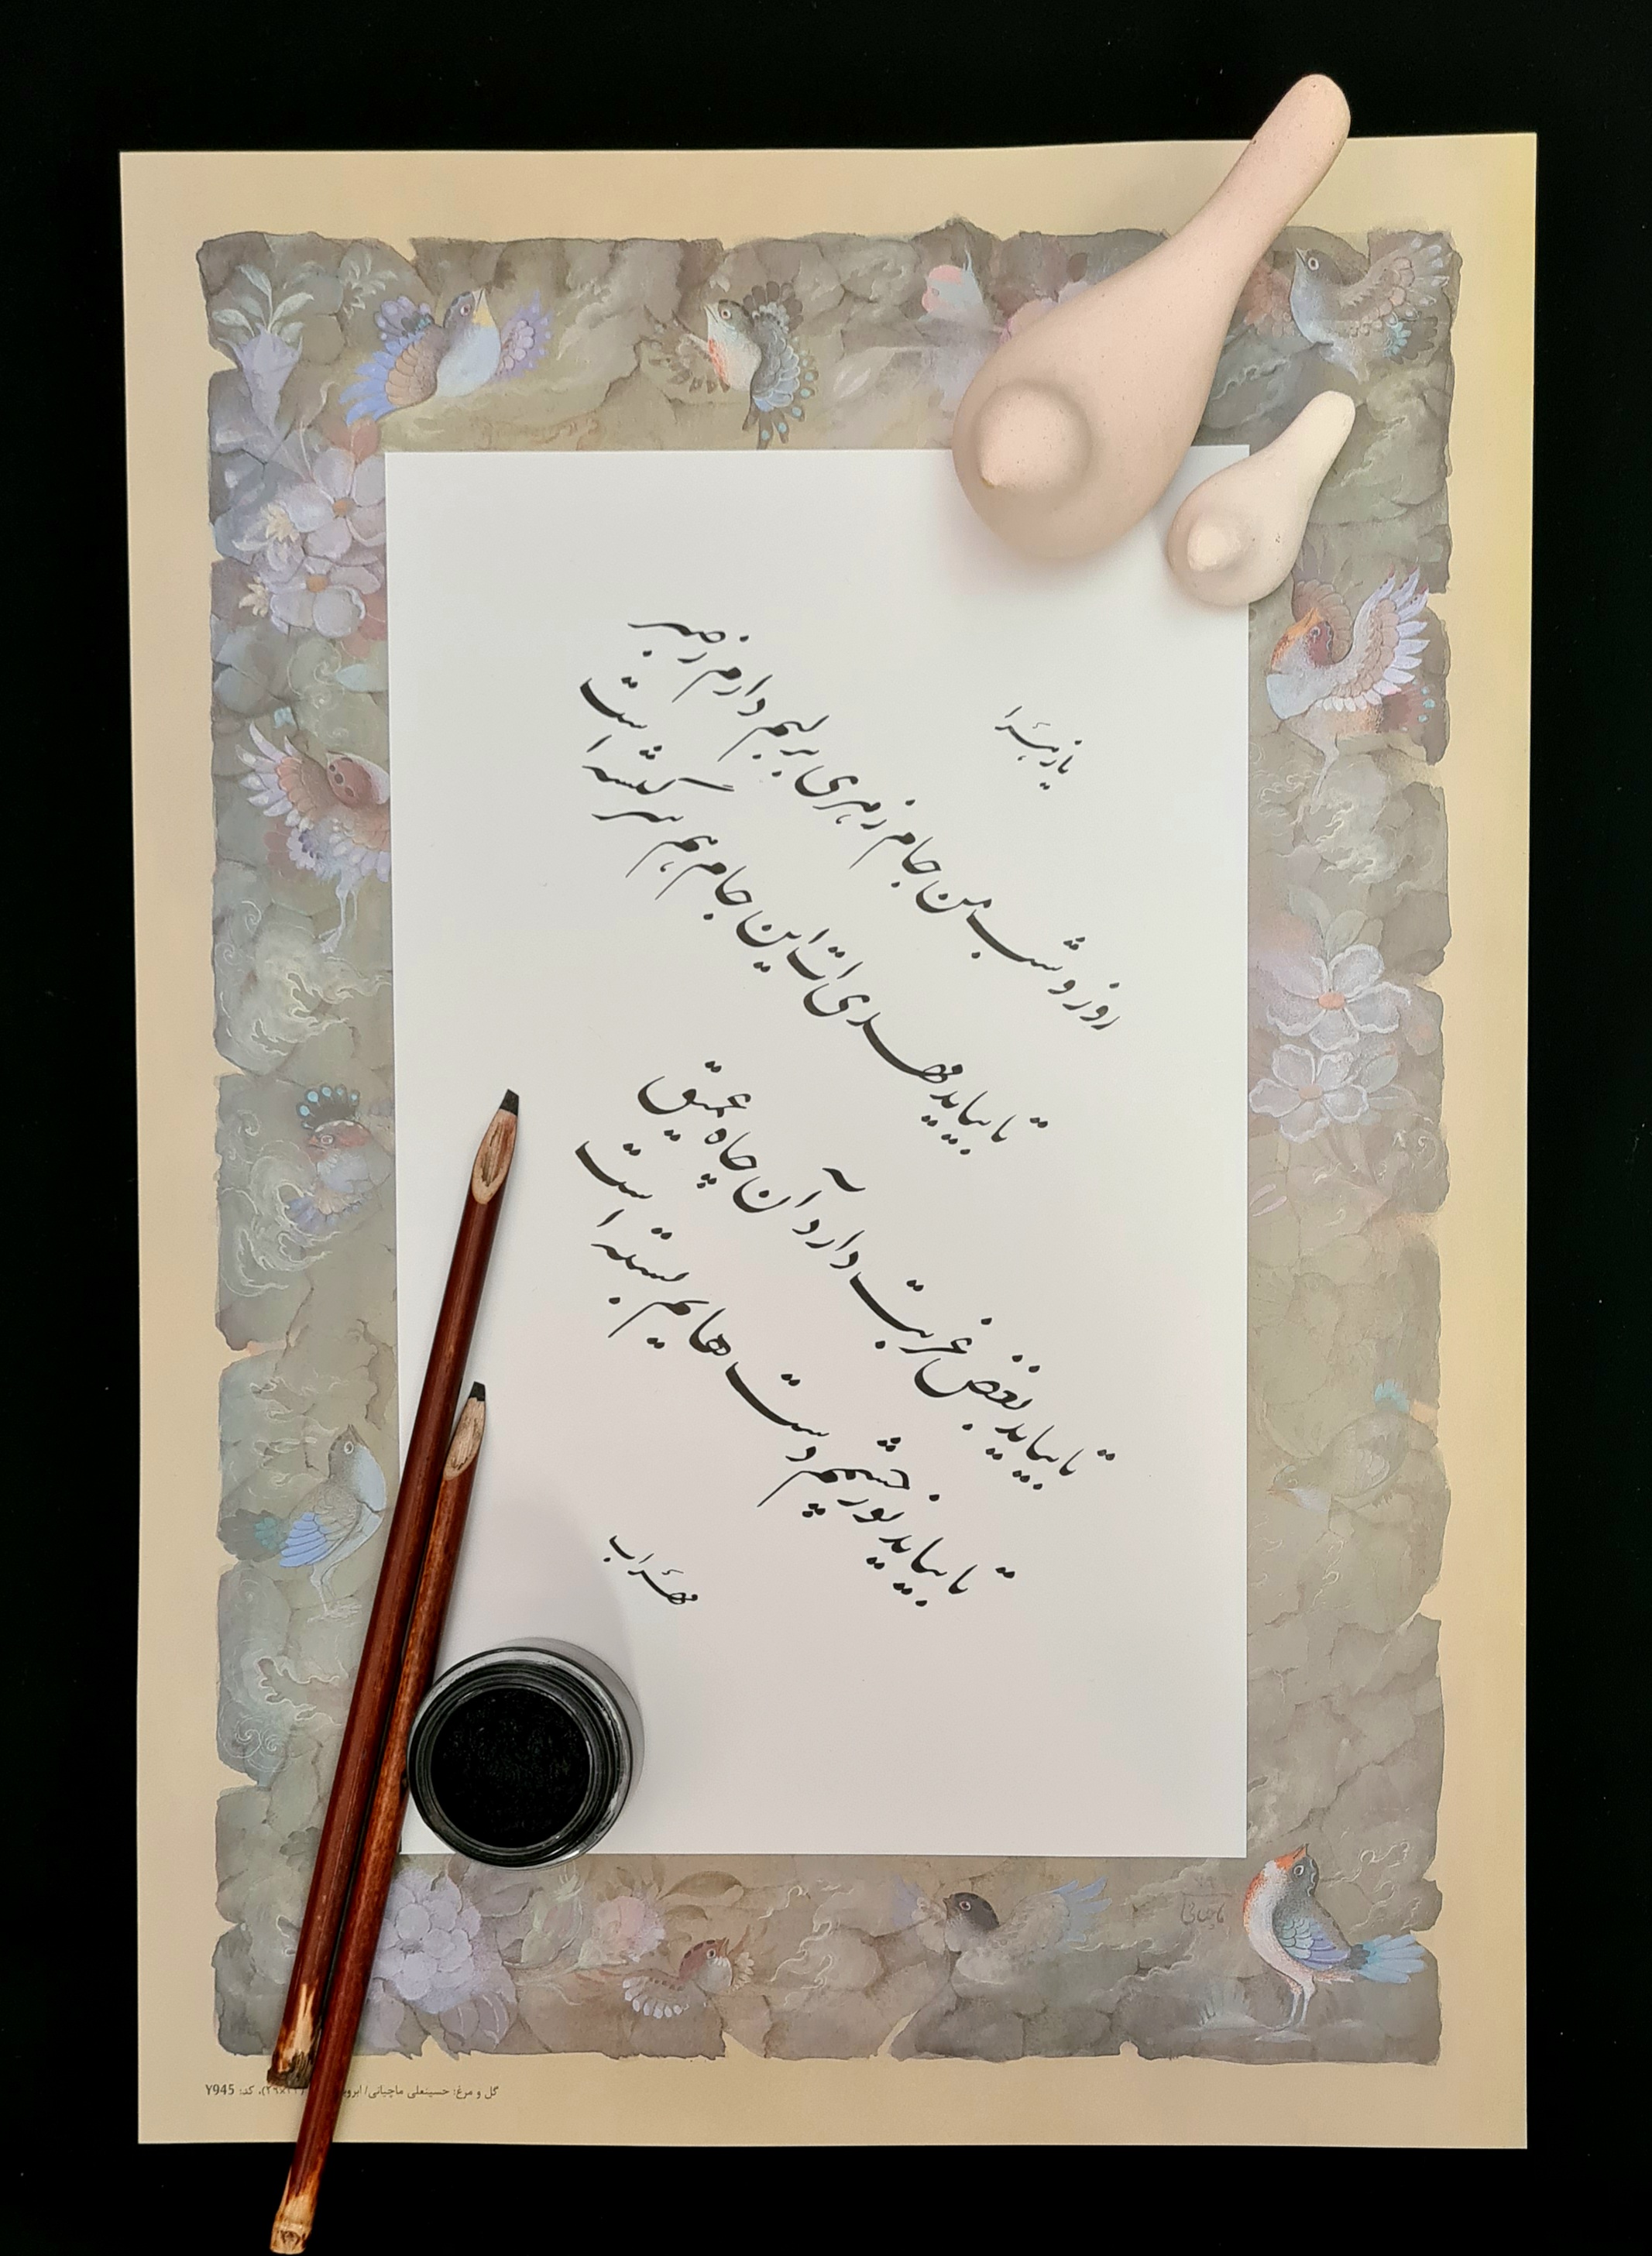 یا زهرا
روز و شب من جام زهری بر لبم دارم ز صبر
تا بیاید مهدی ات این جام هم سرگشته است
تا بیاید بغض غربت دارد آن چاه عمیق
تا بیاید نور چشمم دست هایم بسته است
مهراب
ماچیانی
گل و مرغ: حسینعلی ماچیانی/ کد: Y945